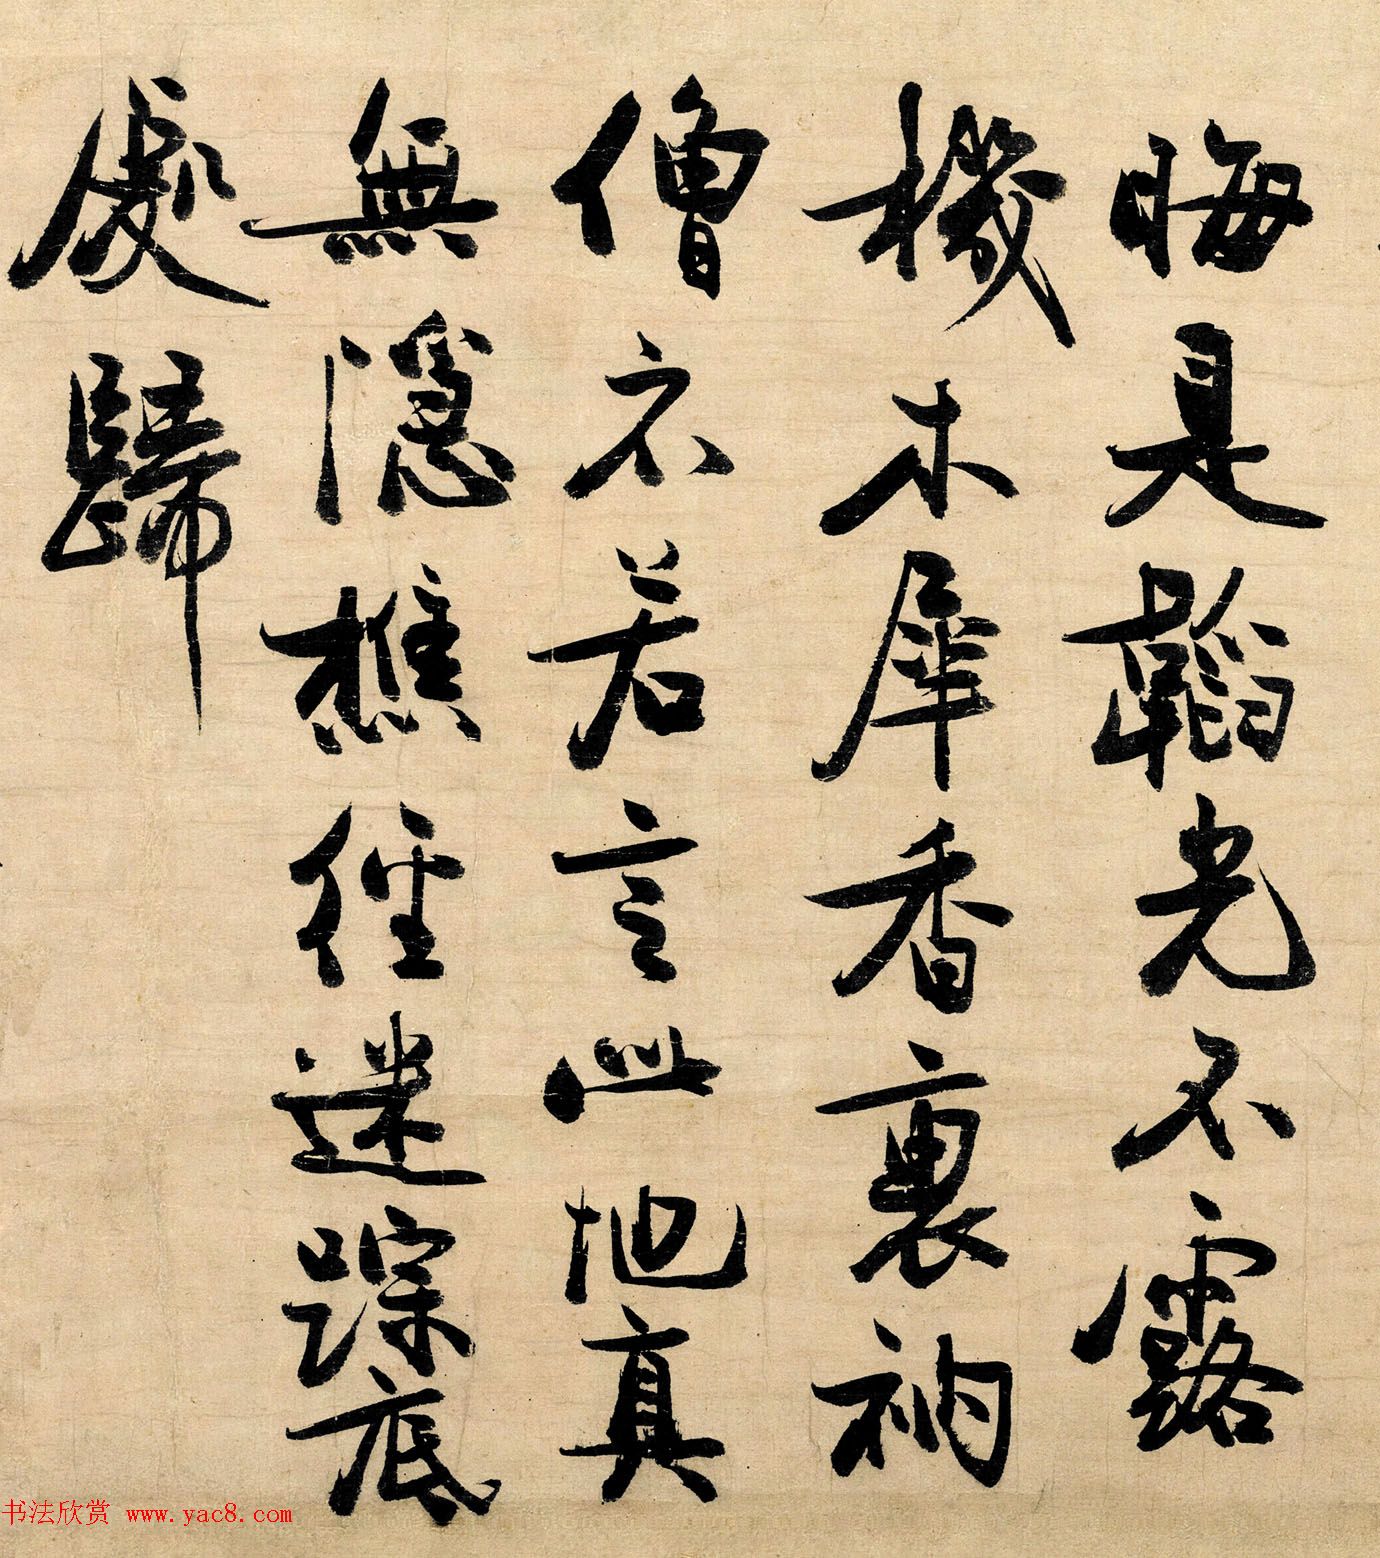 晦是韜光不露
機木犀香裏衲
僧衣若言此地真
無隱樵徑迷蹤底
處歸
书法欣赏 www.yac8.com